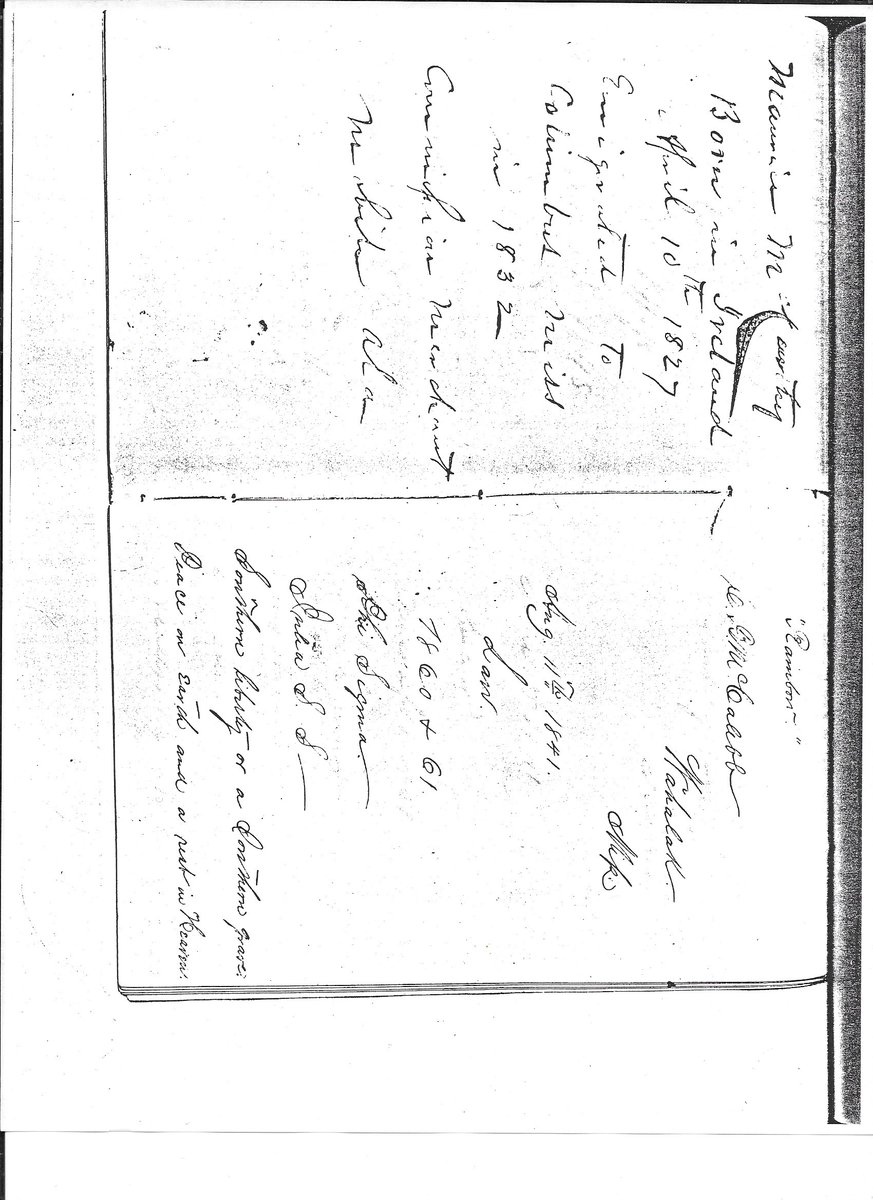 Maurice McCarthy
Born in Ireland
April 10th 1827
Emigrated to
Columbus Miss
in 1832
Commission Merchant
Mobile Ala
"Rambler."
McCalebb
Wahalak.
Aug. 11th 1841.
Law.
1860 & 61.
Phi Sigma.
S S
Southern liberty or a Southern grave.
Peace on Earth and a rest in Heaven.